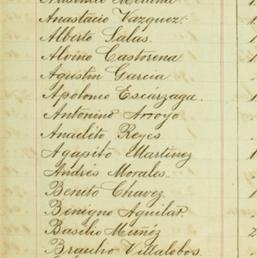 Anastacio Vazquez.
Alberto Salas.
Albino Castorena
Agustin Garcia
Apolonio Escárzaga.
Antonino Arroyo
Anacleto Reyes
Agapito Martinez 1
Andrés Morales.
Benito Chavez. 1
Benigno Aguilar.
Basilio Muñóz 2
Braulio Villalobos